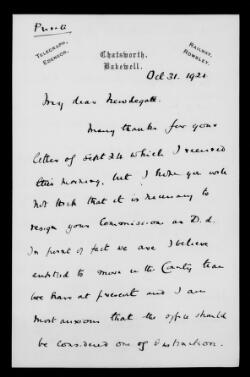 Private
Telegraph,
Edensor.
Railway,
Rowsley.
Chatsworth,
Bakewell.
Oct 31. 1921
My dear Newdegate.
Many thanks for your
letter of Sept 24 which I received
this morning, but I hope you will
not think that it is necessary to
resign your Commission as D. L.
In point of fact we are I believe
entitled to more in the County than
we have at present and I am
most anxious that the office should
be considered one of distinction.